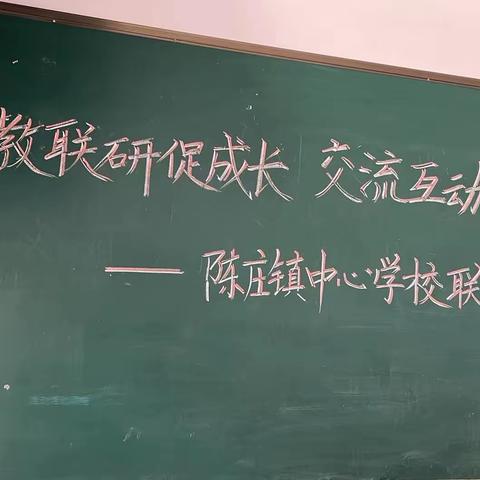 教联研促成长 交流互动
—— 陈庄镇中心学校联